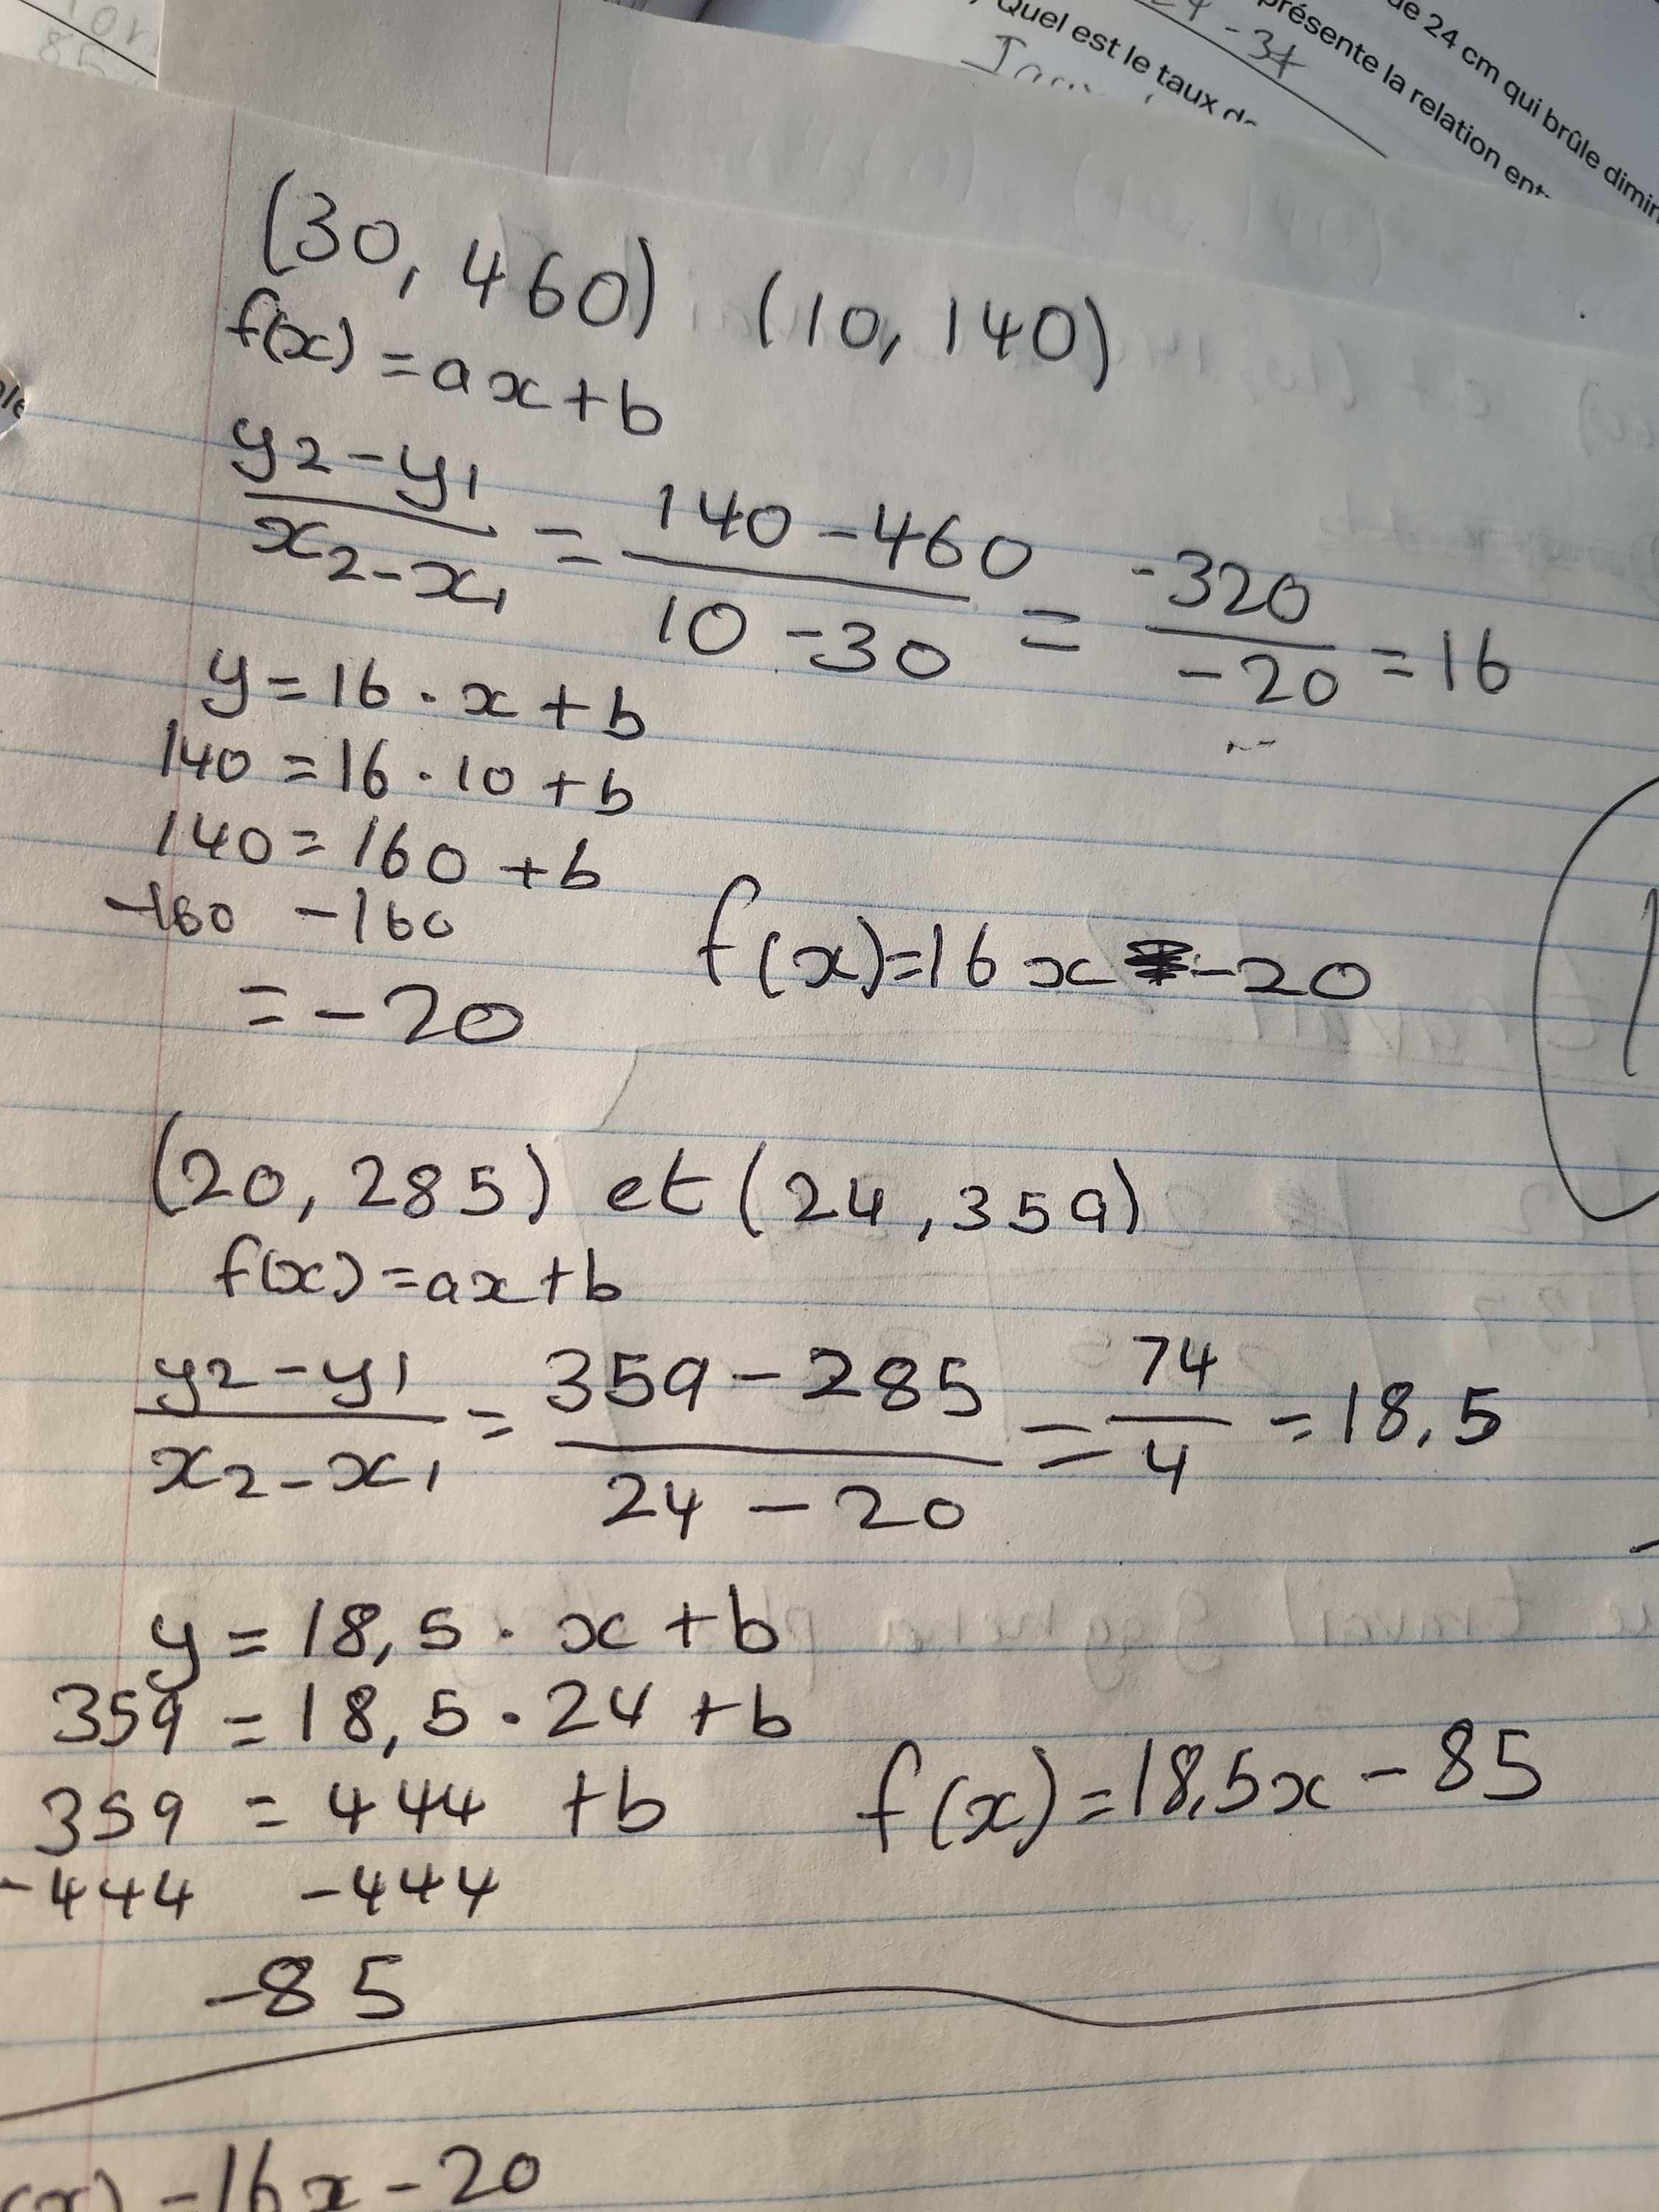 de 24 cm qui brûle
présente la relation
Quel est le taux
-34
(30, 460) (10, 140)
f(x) = ax+b
y2-y1/x2-x1 = 140-460/10-30 = -320/-20 = 16
y = 16 · x + b
140 = 16 · 10 + b
140 = 160 + b
-160 -160
= -20
f(x)=16x -20
(20, 285) et (24, 359)
f(x) = ax+b
y2-y1/x2-x1 = 359-285/24-20 = 74/4 = 18,5
y = 18,5 · x + b
359 = 18,5 · 24 + b
359 = 444 + b
-444 -444
-85
f(x)=18,5x-85
(x) = 16x - 20